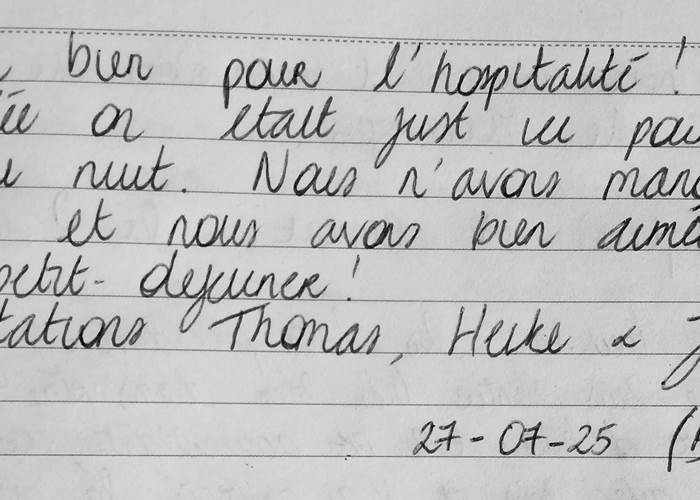 bien pour l'hospitalité!
on etait just ici
nuit. Nous n'avons
et nous avons bien
petit-dejeuner!
Thomas, Heike &
27-07-25